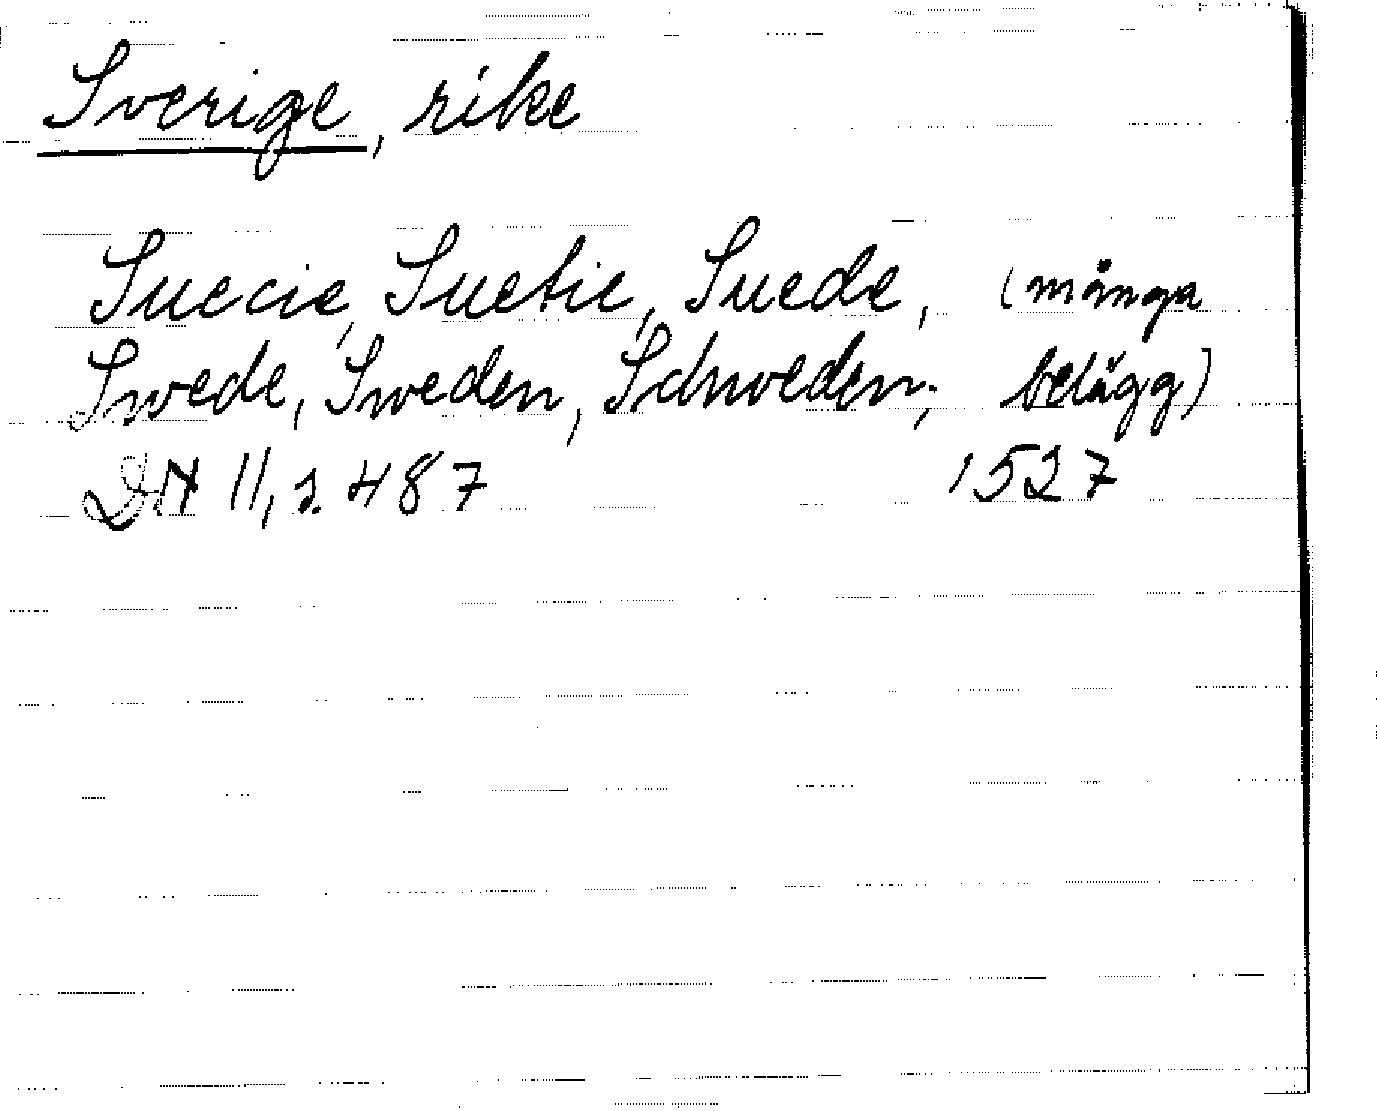 Sverige, rike
Suecie, Suetie, Suede, (många
Swede, Sweden, Schweden; belägg)
DN 11, s. 487 1527